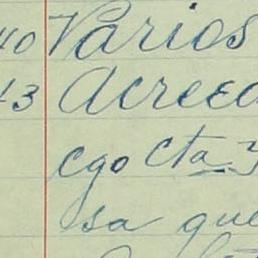 40 Varios
43 Acreed
cgo cta
sa que